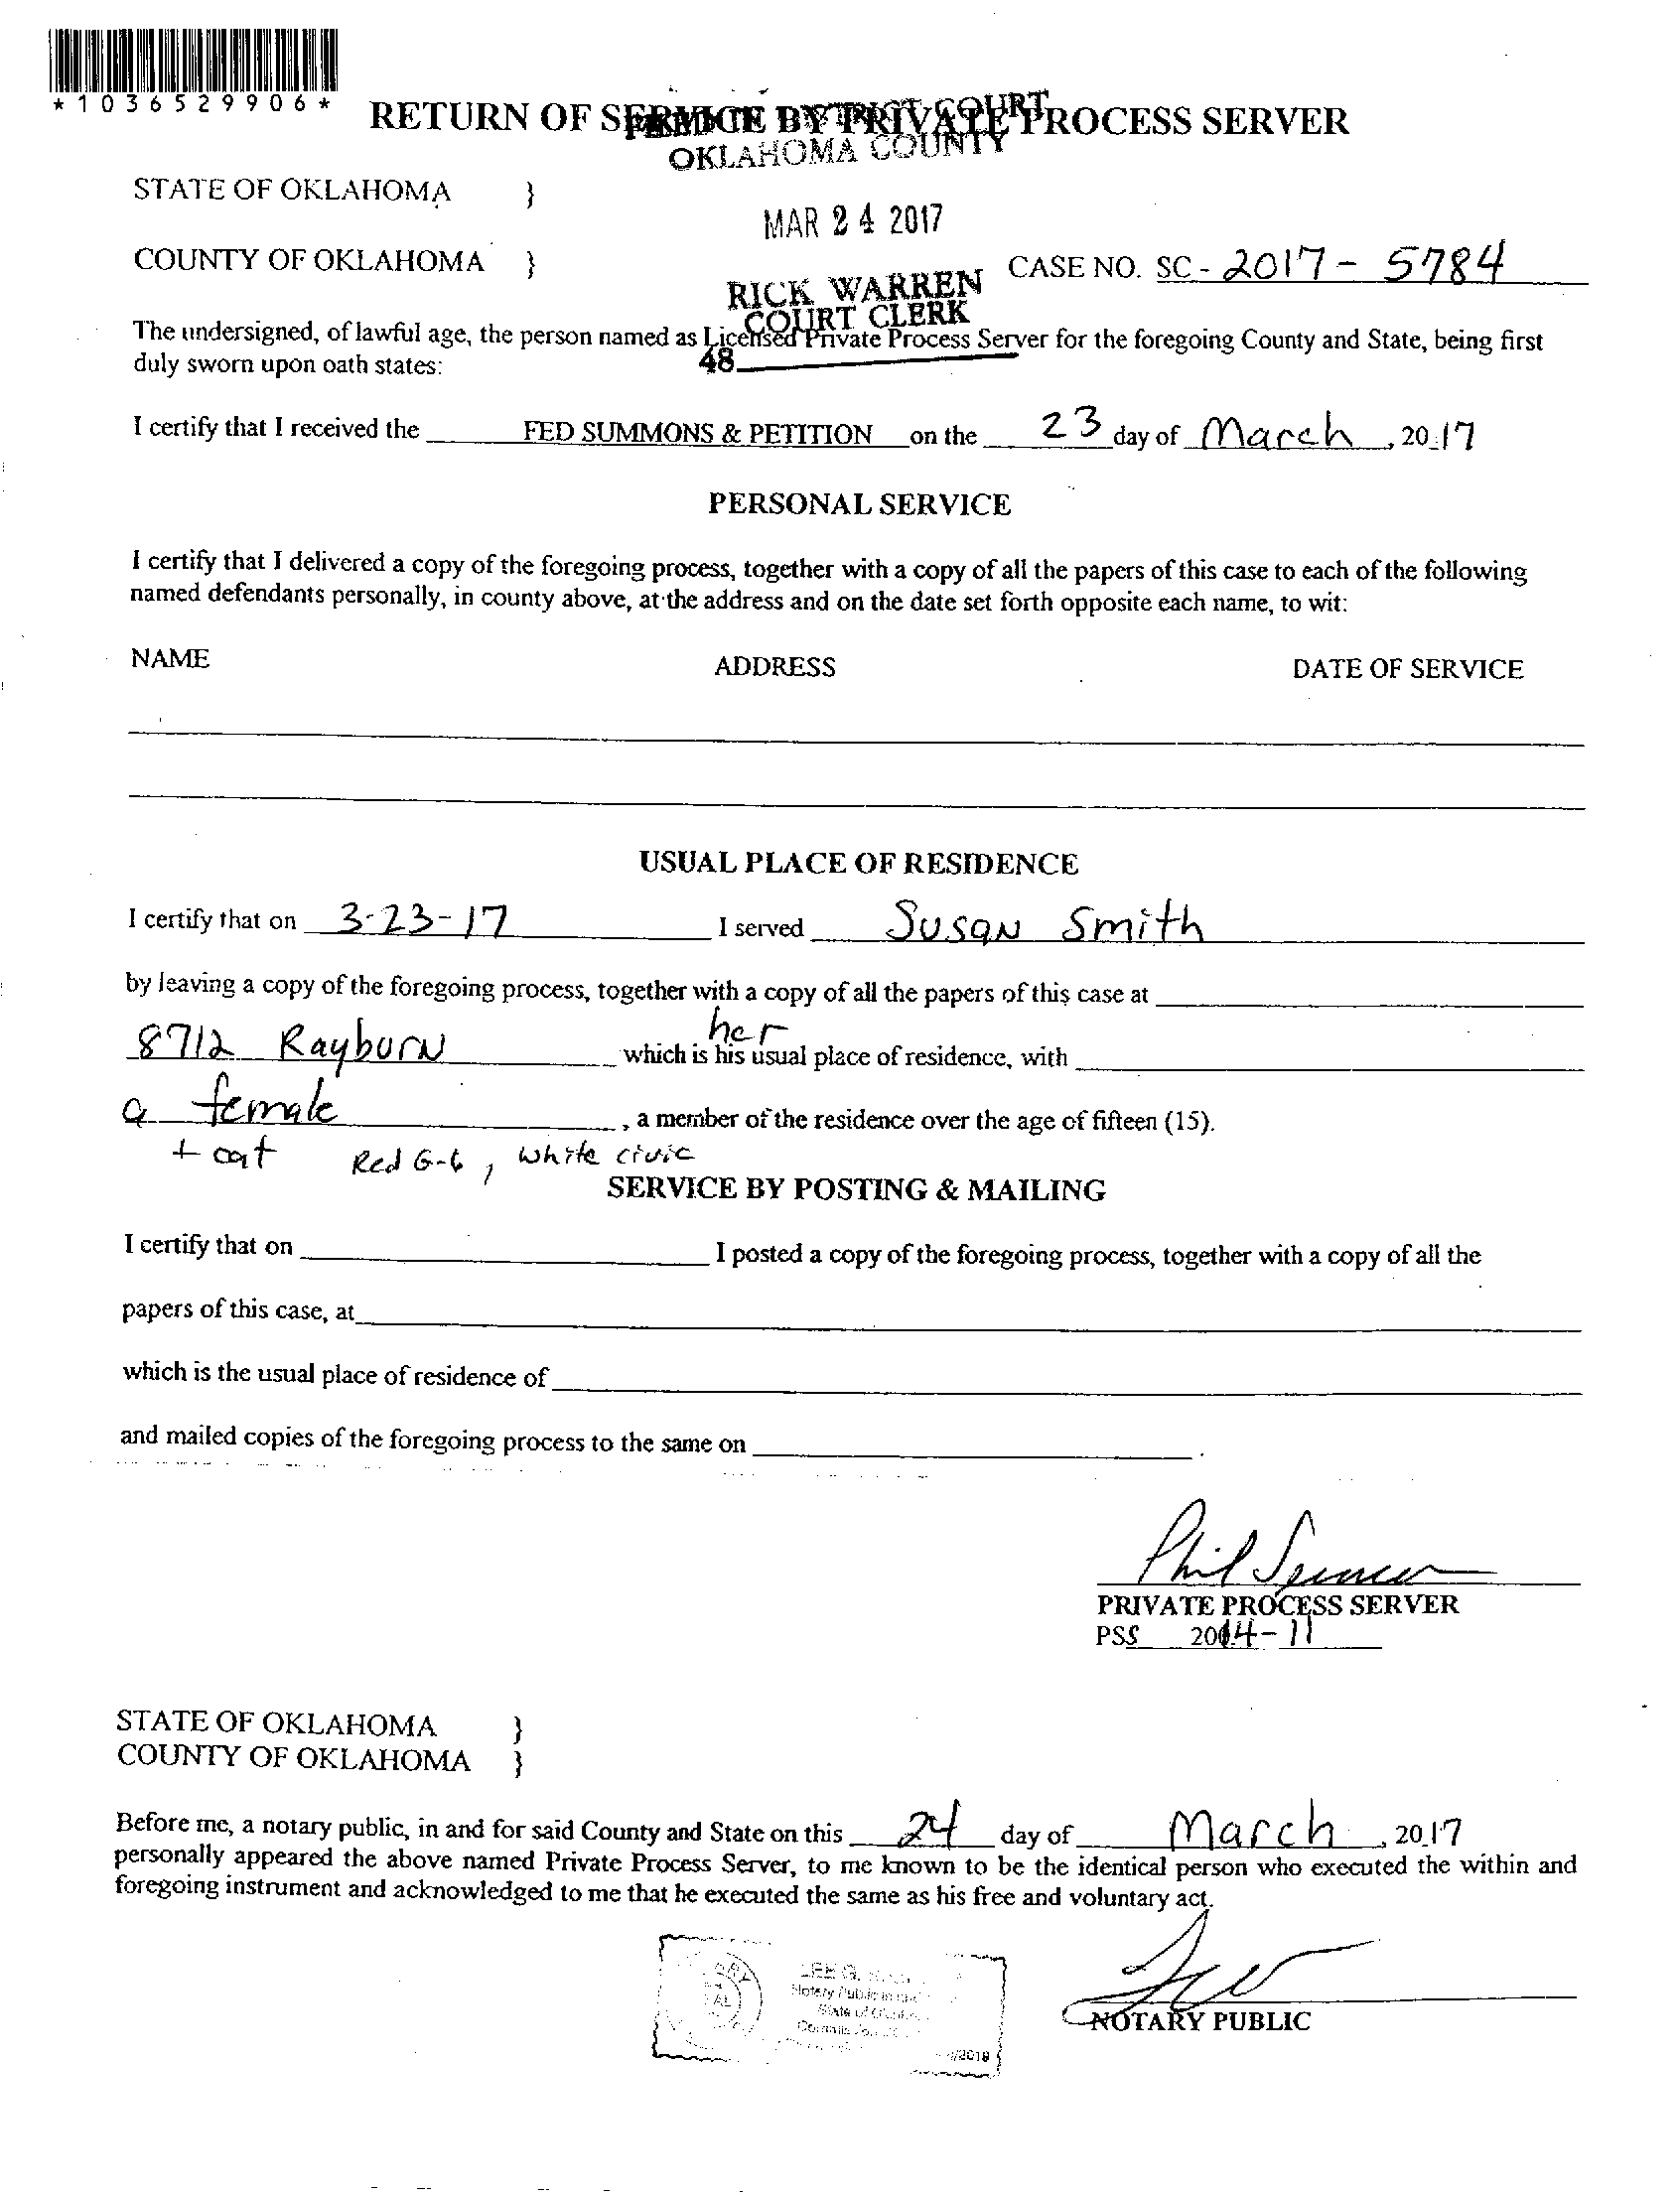 *1036529906*
RETURN OF SERVICE BY PRIVATE PROCESS SERVER
DISTRICT COURT
OKLAHOMA COUNTY
STATE OF OKLAHOMA }
MAR 24 2017
COUNTY OF OKLAHOMA }
CASE NO. SC - 2017 - 5784
RICK WARREN
COURT CLERK
The undersigned, of lawful age, the person named as Licensed Private Process Server for the foregoing County and State, being first
duly sworn upon oath states:
48
I certify that I received the FED SUMMONS & PETITION on the 23 day of March, 2017
PERSONAL SERVICE
I certify that I delivered a copy of the foregoing process, together with a copy of all the papers of this case to each of the following
named defendants personally, in county above, at the address and on the date set forth opposite each name, to wit:
NAME ADDRESS DATE OF SERVICE
USUAL PLACE OF RESIDENCE
I certify that on 3-23-17 I served Susan Smith
by leaving a copy of the foregoing process, together with a copy of all the papers of this case at
her
8712 Rayburn which is his usual place of residence, with
a female, a member of the residence over the age of fifteen (15).
+ cat Red G-6, white civic
SERVICE BY POSTING & MAILING
I certify that on I posted a copy of the foregoing process, together with a copy of all the
papers of this case, at
which is the usual place of residence of
and mailed copies of the foregoing process to the same on .
Phil Spencer
PRIVATE PROCESS SERVER
PSS 2014-11
STATE OF OKLAHOMA }
COUNTY OF OKLAHOMA }
Before me, a notary public, in and for said County and State on this 24 day of March, 2017
personally appeared the above named Private Process Server, to me known to be the identical person who executed the within and
foregoing instrument and acknowledged to me that he executed the same as his free and voluntary act.
LEE G.
Notary Public in
State of
/2018
NOTARY PUBLIC